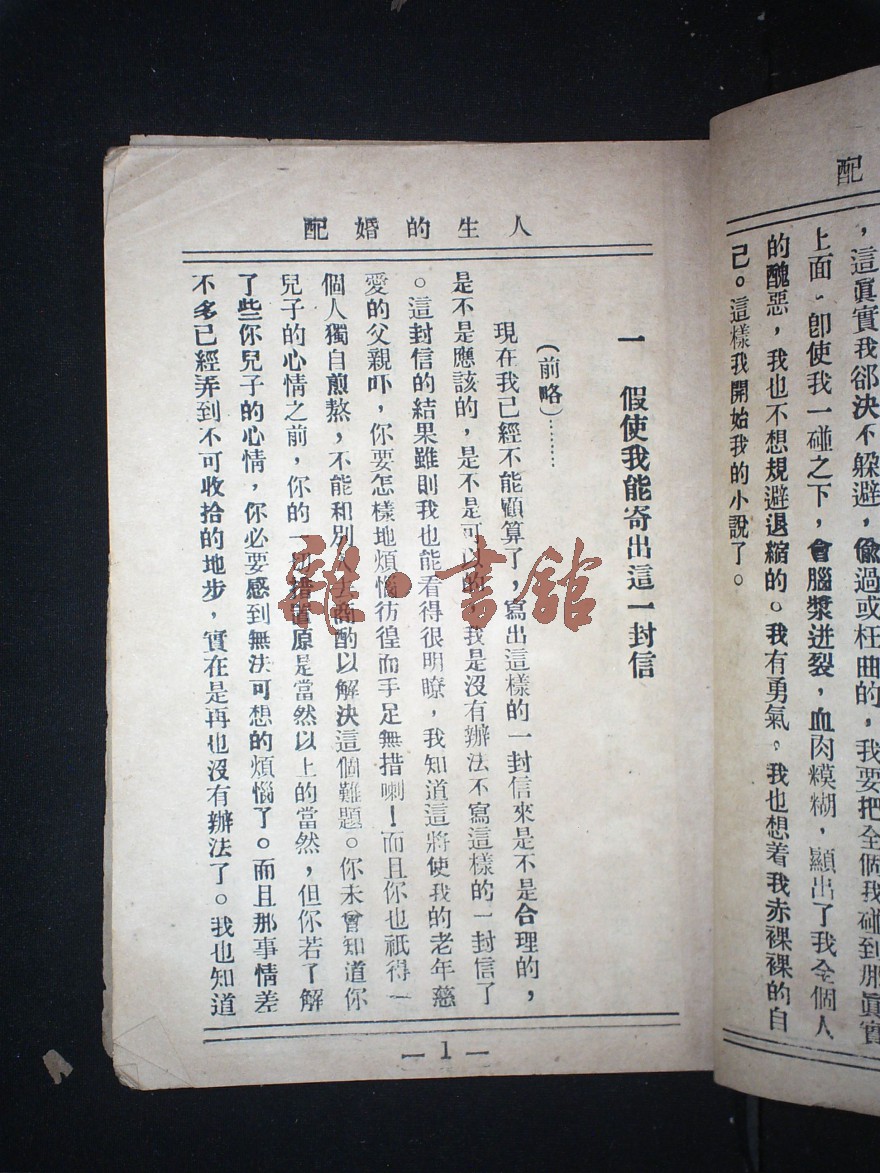 配
，這眞實我卻決不躲避，偸過或枉曲的，我要把全個我碰到那眞實
上面。卽使我一碰之下，會腦漿迸裂，血肉糢糊，顯出了我全個人
的醜惡，我也不想規避退縮的。我有勇氣。我也想着我赤裸裸的自
己。這樣我開始我的小說了。
人生的婚配
一　假使我能寄出這一封信
（前略）………
現在我已經不能顧算了，寫出這樣的一封信來是不是合理的，
是不是應該的，是不是可以的，我是沒有辦法不寫這樣的一封信了
。這封信的結果雖則我也能看得很明瞭，我知道這將使我的老年慈
愛的父親吓，你要怎樣地煩惱彷徨而手足無措喇！而且你也祇得一
個人獨自煎熬，不能和別人去商酌以解決這個難題。你未曾知道你
兒子的心情之前，你的一切措置原是當然以上的當然，但你若了解
了些你兒子的心情，你必要感到無法可想的煩惱了。而且那事情差
不多已經弄到不可收拾的地步，實在是再也沒有辦法了。我也知道
— 1 —
雜·書館